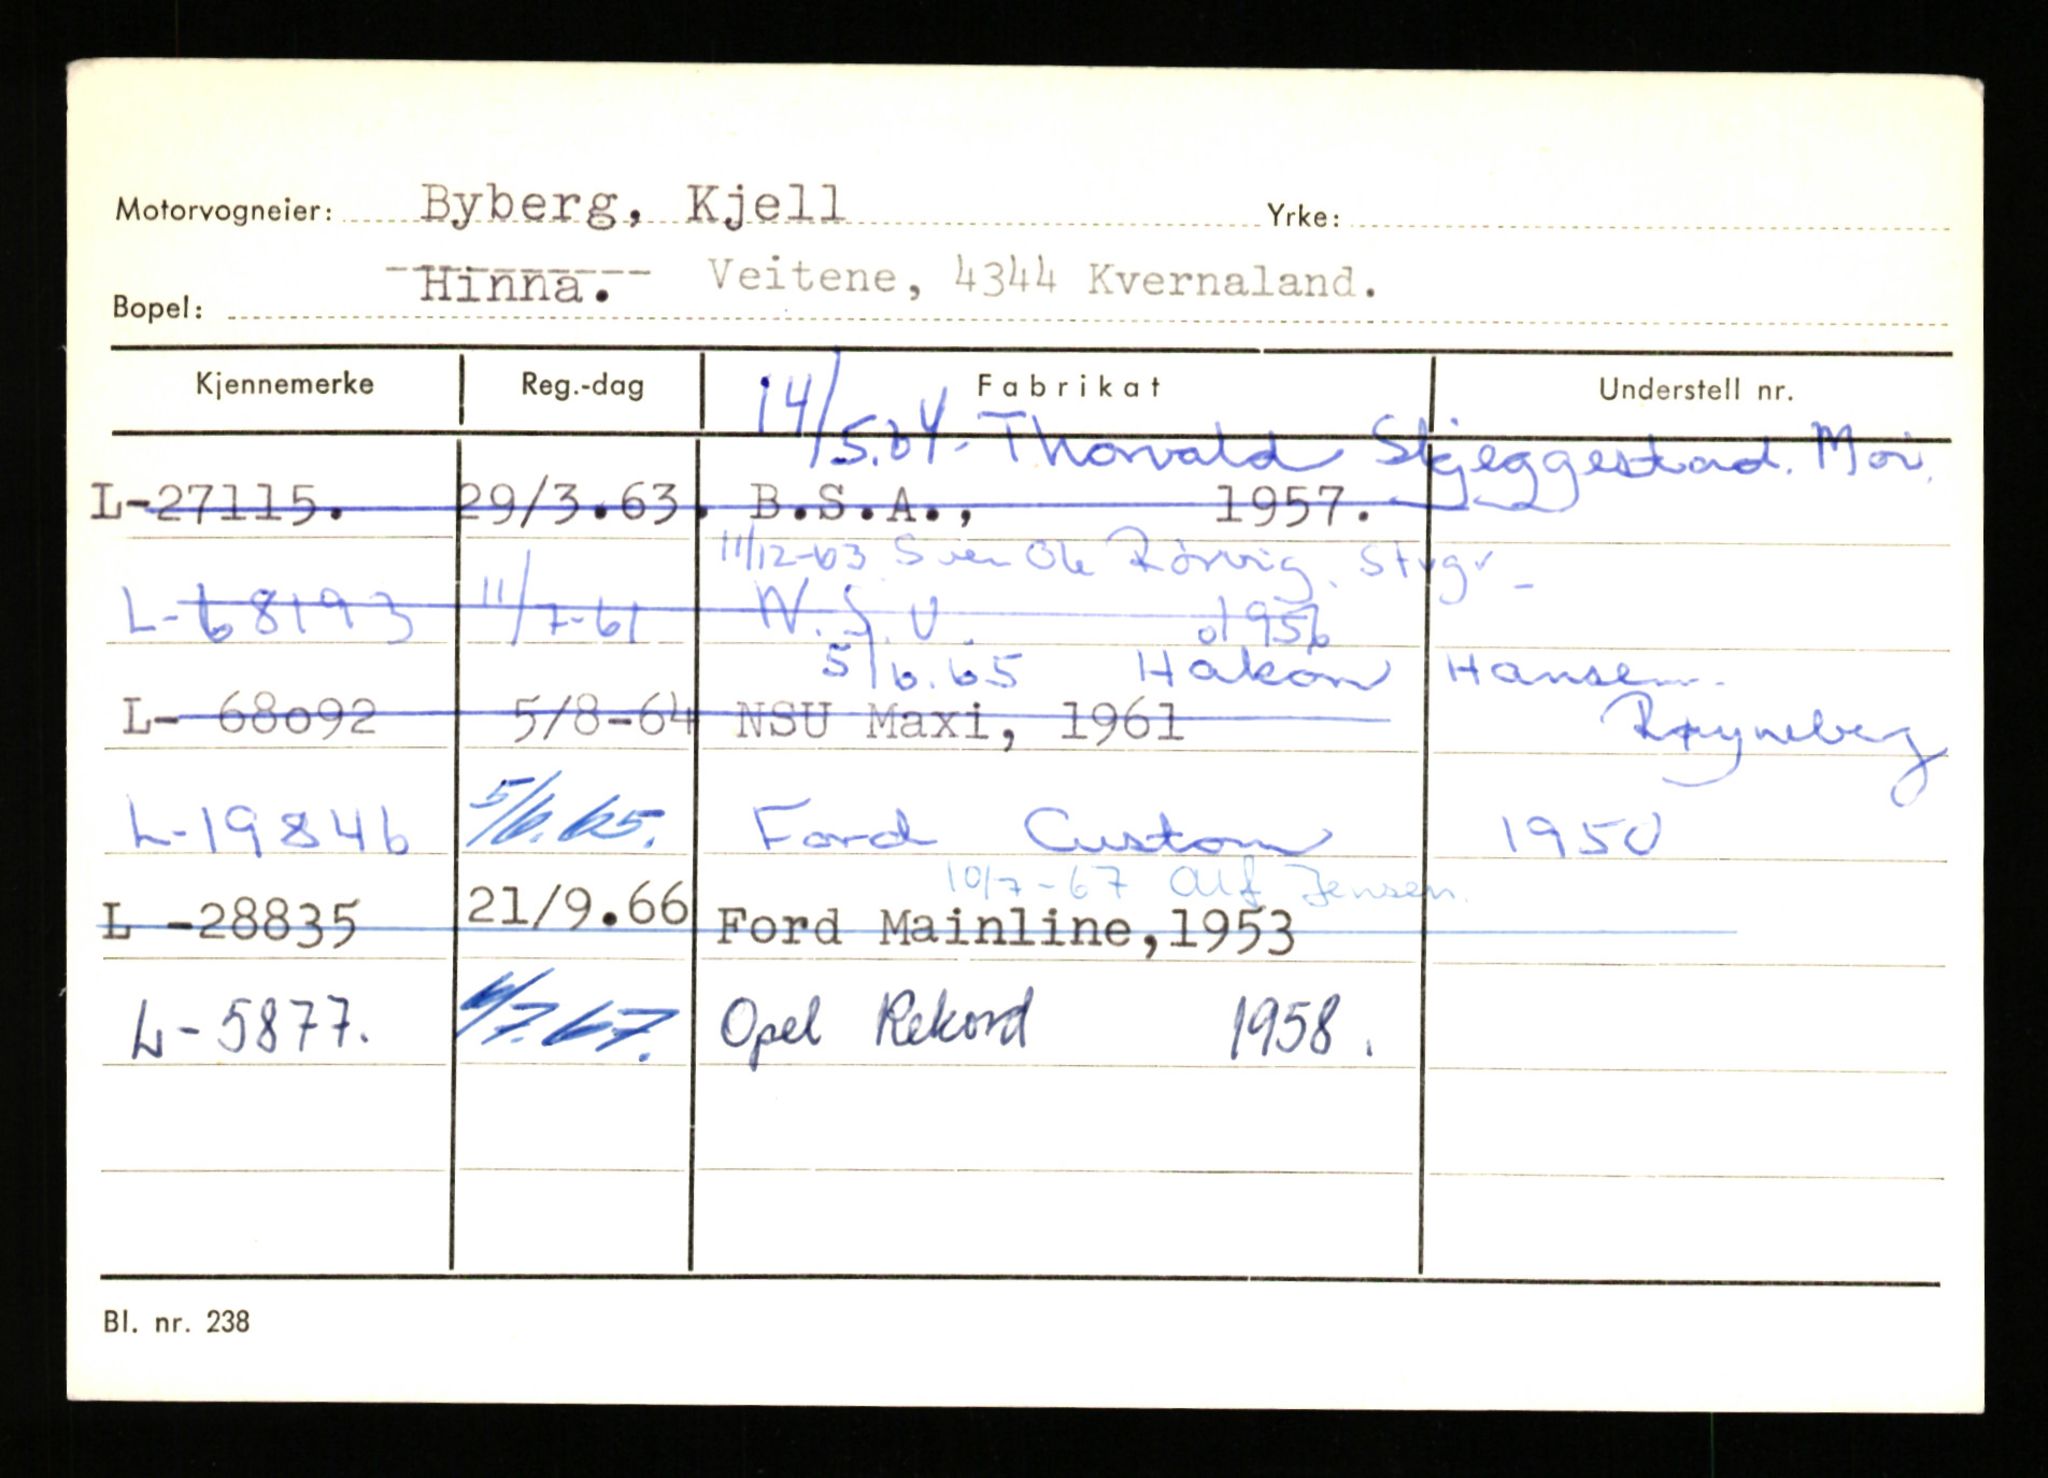 Motorvogneier: Byberg, Kjell Yrke:
Hinna. Veitene, 4344 Kvernaland.
Bopel:
Kjennemerke Reg.-dag Fabrikat Understell nr.
14/5.64. Thorvald Skjeggestad. Moi.
L-27115. 29/3.63. B.S.A., 1957.
11/12-63 Sven Ole Rörvig. Stvgr
L-68193 11/7-61 N.S.U. 1956
5/6.65 Håkon Hansen.
L- 68092 5/8-64 NSU Maxi, 1961
L-19846 5/6.65. Ford Custom 1950
10/7-67 Alf Jensen.
L -28835 21/9.66 Ford Mainline,1953
L-5877. /7.67. Opel Rekord 1958.
Bl. nr. 238